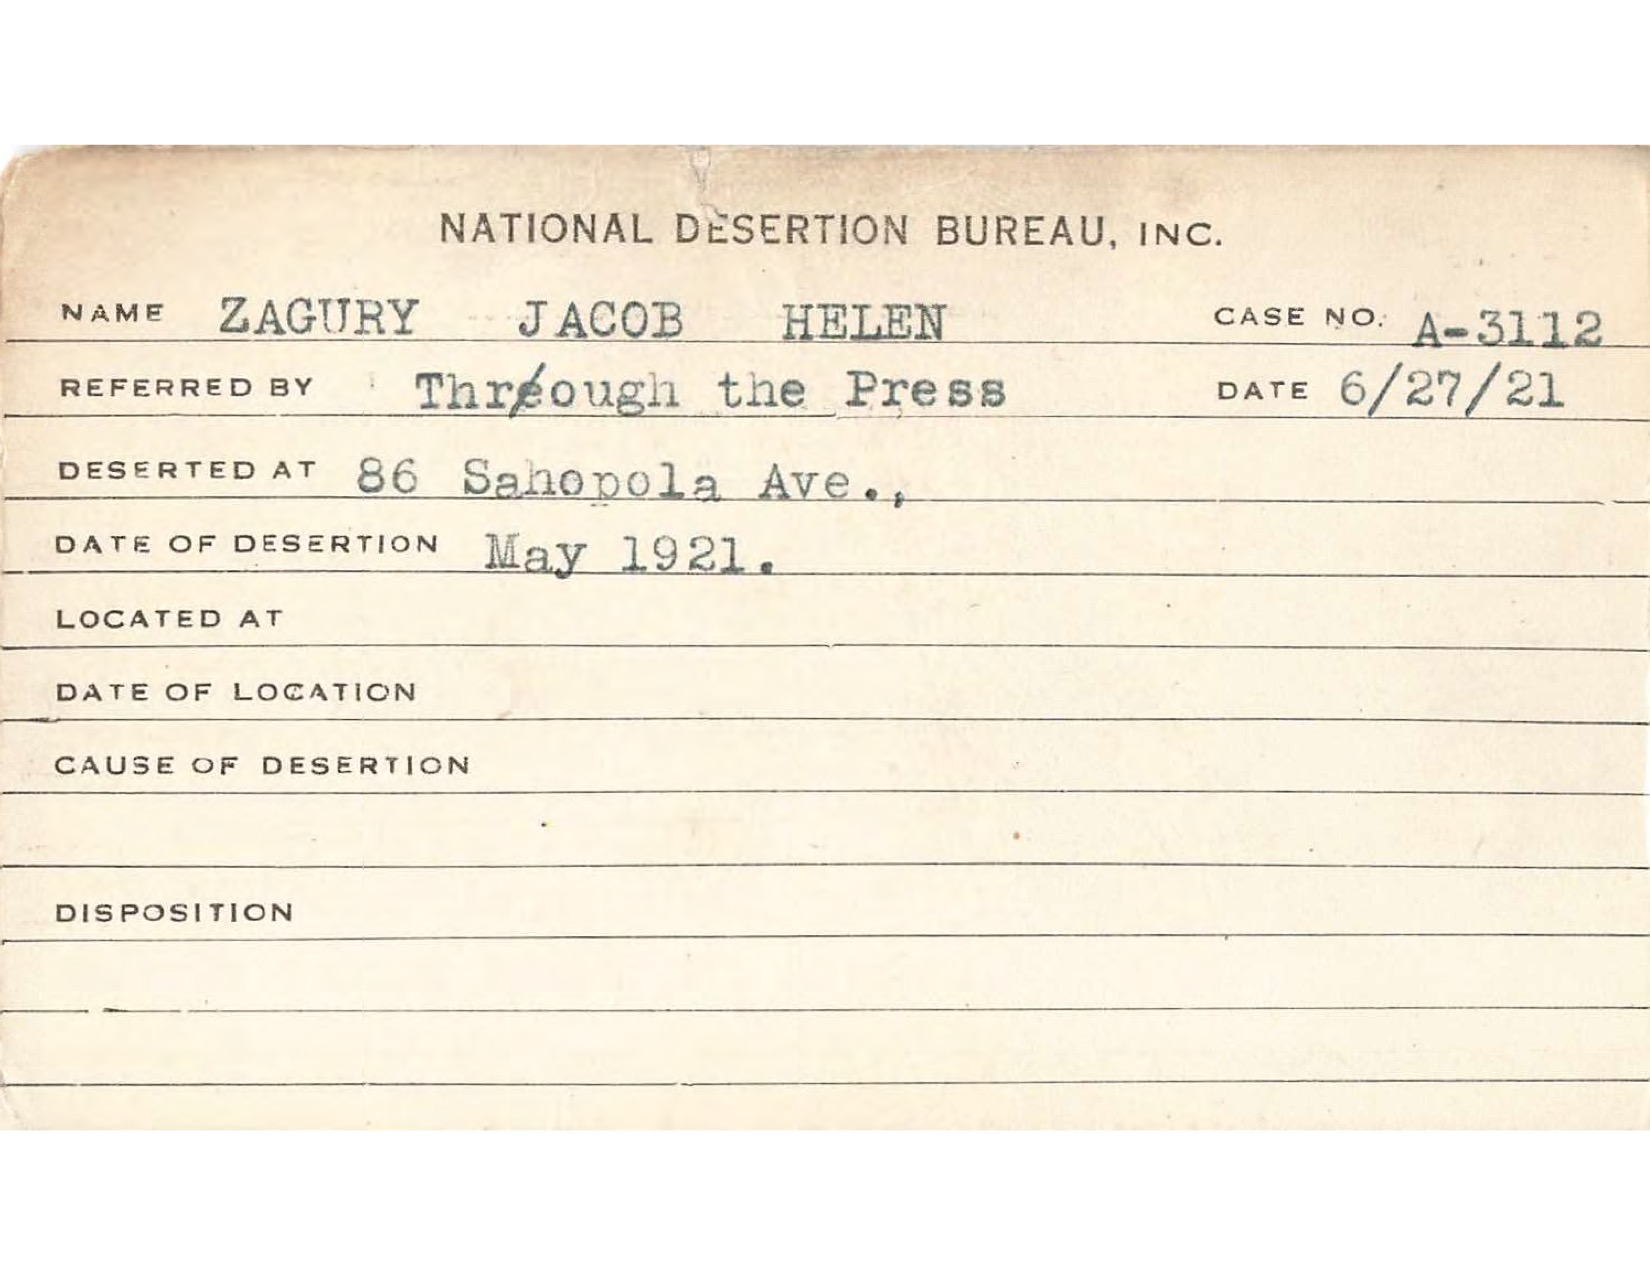 NATIONAL DESERTION BUREAU, INC.
NAME ZAGURY JACOB HELEN CASE NO. A-3112
REFERRED BY Through the Press DATE 6/27/21
DESERTED AT 86 Sahopola Ave.,
DATE OF DESERTION May 1921.
LOCATED AT
DATE OF LOCATION
CAUSE OF DESERTION
DISPOSITION